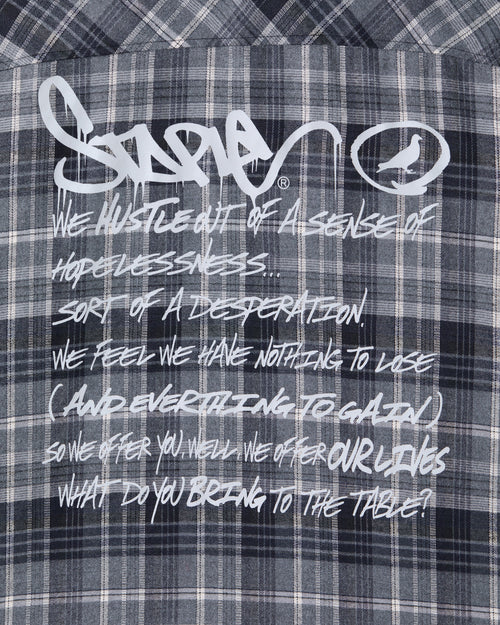 STAPLE ®
WE HUSTLE OUT OF A SENSE OF
HOPELESSNESS...
SORT OF A DESPERATION.
WE FEEL WE HAVE NOTHING TO LOSE
(AND EVERTHING TO GAIN)
SO WE OFFER YOU, WELL, WE OFFER OUR LIVES
WHAT DO YOU BRING TO THE TABLE?